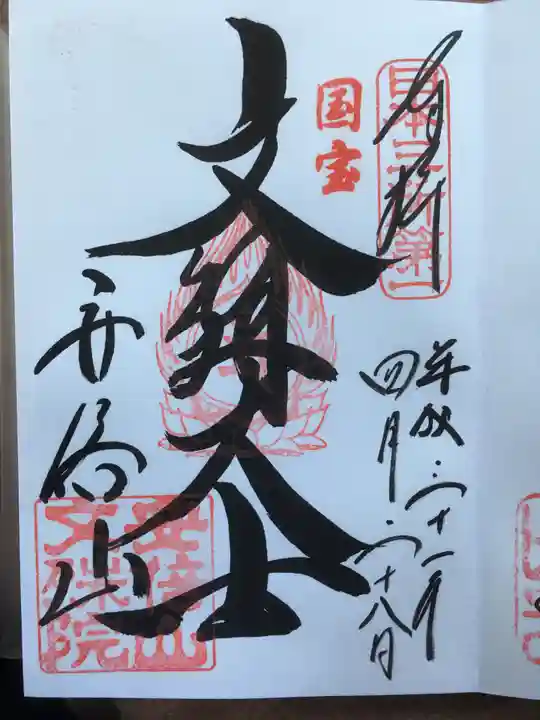 奉拝
日本三所第一
平成三十一年
四月二十八日
国宝
文殊大士
安倍山
安倍山
文殊院